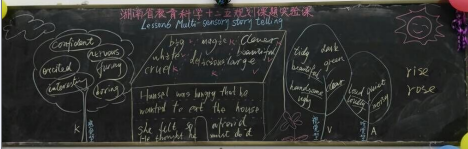 湖南省教育科学十二五规划课题实验课
Lesson6 Multi-sensory story telling
Confident
nervous
excited
funny
interesting
boring
K
big magic clever
K
white delicious large beautiful
cruel K V
Hansel was hungry that he
wanted to eat the house
she felt so afraid
He thought he must do it
tidy dark
green
beautiful
clear
handsome
ugly
V
loud quiet
noisy
A
rise
rose